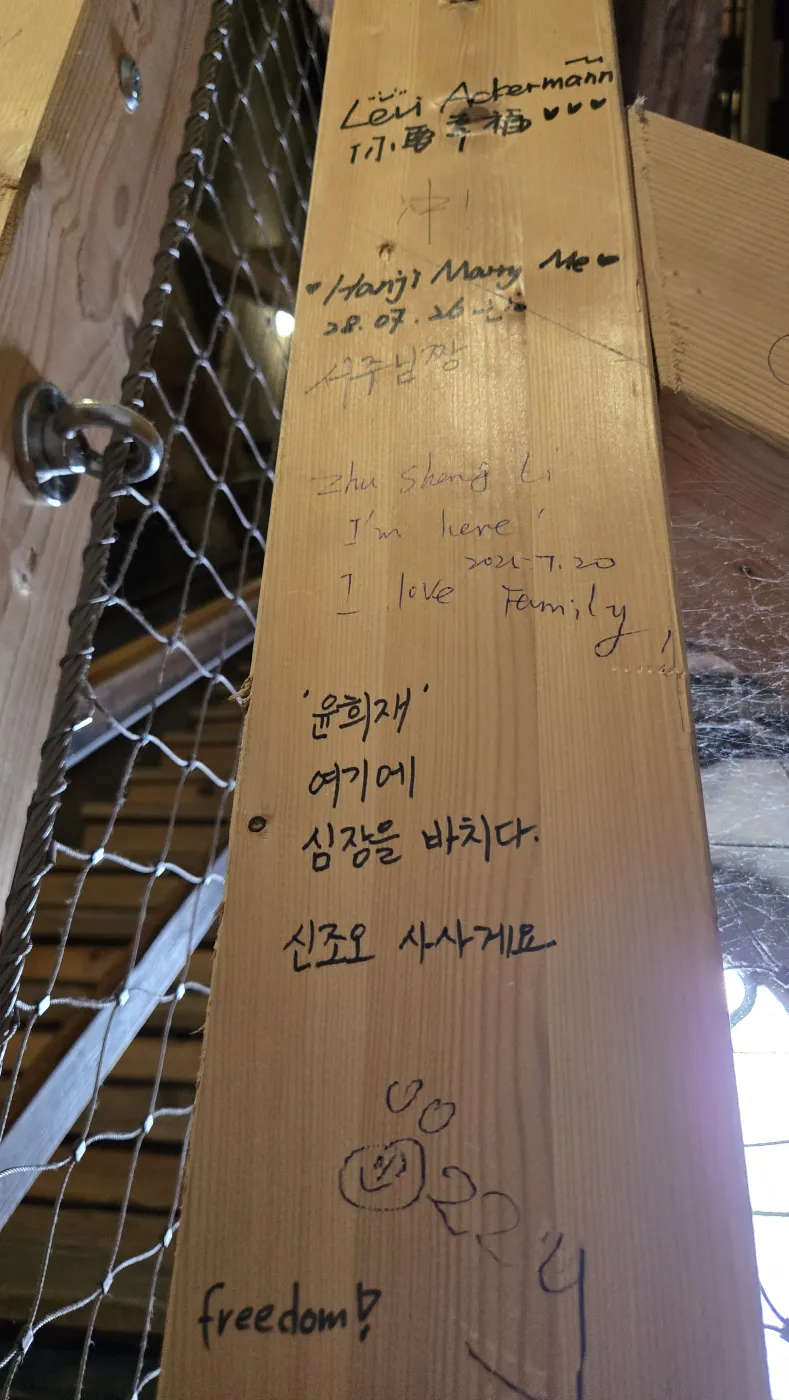 Levi Ackermann
你要幸福 ♥♥♥
冲!
♥Hanji Marry Me♥
28.07.26
주님짱
Zhu Sheng Li
I'm here!
7.20
I love Family!
'윤희재'
여기에
심장을 바치다.
신조오 사사게요
freedom!